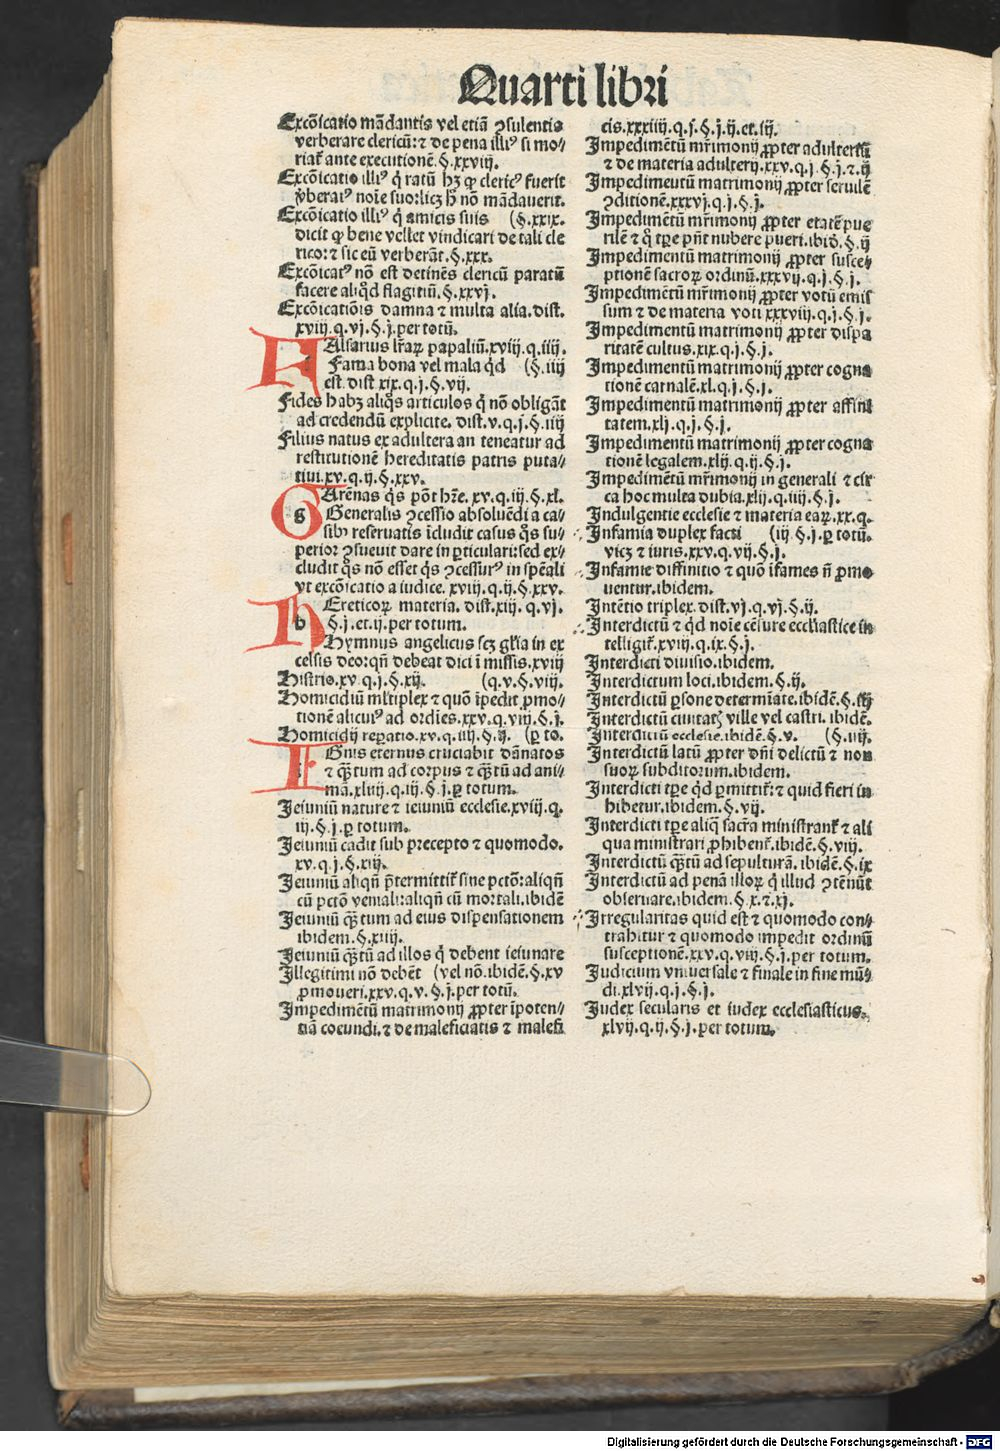 Quarti libri
Excōicatio mādantis vel etiā ꝯsulentis
verberare clericū: ⁊ de pena illiꝰ si mo⸗
riat᷑ ante executionē.§.xxviij.
Excōicatio illiꝰ q̇ ratū hꝫ ꝙ clericꝰ fuerit
v̓beratꝰ noīe suo: licꝫ h̄ nō mādauerit.
Excōicatio illiꝰ q̇ amicis suis (§.xxix.
dicit ꝙ bene vellet vindicari de tali cle
rico: ⁊ sic eū verberāt.§.xxx.
Excōicatꝰ nō est detinēs clericū paratū
facere aliq̇d flagitiū.§.xxxj.
Excōicatiōis damna ⁊ multa alia. dist.
xviij.q.vj.§.j.per totū.
FAlsarius lr̄aꝝ papaliū.xviij.q.iiij.
Fama bona vel mala q̇d (§.iiij
est. dist xix.q.j.§.vij.
Fides habꝫ aliq̄s articulos q̇ nō obligāt
ad credendū explicite. dist.v.q.j.§.iiij
Filius natus ex adultera an teneatur ad
restitutionē hereditatis patris puta⸗
tiui.xv.q.ij.§.xxv.
GArēnas q̄s pōt hr̄e.xv.q.iij.§.xl.
g Generalis ꝯcessio absoluēdi a ca⸗
sibꝰ reseruatis īcludit casus q̄s su⸗
perior ꝯsueuit dare in ꝑticulari: sed ex⸗
cludit q̄s nō esset q̄s ꝯcessurꝰ in sp̄eali
vt excōicatio a iudice.xviij.q.ij.§.xxv.
HEreticoꝝ materia. dist.xiij.q.vj.
h §.j.et.ij.per totum.
Hymnus angelicus scꝫ gl̄ia in ex
celsis deo: qn̄ debeat dici ī missis.xviij
Histrio.xv.q.j.§.xij. (q.v.§.viij.
Homicidiū mltiplex ⁊ quō īpedit ꝓmo⸗
tionē alicuiꝰ ad ordīes.xxv.q.viij.§.j.
Homicidij reꝑatio.xv.q.iiij.§.ij. (ꝑ to.
IGnis eternus cruciabit dānatos
i ⁊ q̄ꝫtum ad corpus ⁊ q̄ꝫtū ad ani⸗
mā.xliiij.q.iij.§.j.ꝑ totum.
Jeiuniū nature ⁊ ieiuniū ecclesie.xviij.q.
iij.§.j.ꝑ totum.
Jeiuniū cadit sub precepto ⁊ quomodo.
xv.q.j.§.xiij.
Jeiuniū aliqn̄ p̄termittit᷑ sine pctō: aliqn̄
cū pctō veniali: aliqn̄ cū mortali. ibidē
Jeiuniū q̄ꝫtum ad eius dispensationem
ibidem.§.xiiij.
Jeiuniū q̄ꝫtū ad illos q̇ debent ieiunare
Illegitimi nō debēt (vel nō. ibidē.§.xv
ꝓmoueri.xxv.q.v.§.j.per totū.
Impedimētū matrimonij ꝓpter īpoten⸗
tiā coeundi. ⁊ de maleficiatis ⁊ malefi
cis.xxxiiij.q.j.§.j.ij.et.iij.
Impedimētū mr̄imonij ꝓpter adulteriū
⁊ de materia adulterij.xxv.q.j.§.j.⁊.ij
Impedimentū matrimonij ꝓpter seruilē
ꝯditionē.xxxvj.q.j.§.j.
Impedimētū mr̄imonij ꝓpter etatē pue
rilē ⁊ q̇ tꝑe pn̄t nubere pueri. ibid̄.§.ij
Impedimentū matrimonij ꝓpter susce⸗
ptionē sacroꝝ ordinū.xxxvij.q.j.§.j.
Impedimētū mr̄imonij ꝓpter votū emis
sum ⁊ de materia voti xxxviij.q.j.§.j.
Impedimentū matrimonij ꝓpter dispa
ritatē cultus.xix.q.j.§.j.
Impedimentū matrimonij ꝓpter cogna
tionē carnalē.xl.q.j.§.j.
Impedimentū matrimonij ꝓpter affini
tatem.xlj.q.j.§.j.
Impedimentū matrimonij ꝓpter cogna
tionē legalem.xlij.q.ij.§.j.
Impedimētū mr̄imonij in generali ⁊ cir
ca hoc multa dubia.xlij.q.iiij.§.j.
Indulgentie ecclesie ⁊ materia eaꝝ.xx.q.
Infamia duplex facti (iij.§.j.ꝑ totū.
vicꝫ ⁊ iuris.xxv.q.vij.§.j.
Infamie diffinitio ⁊ quō īfames n̄ ꝓmo
uentur. ibidem.
Intētio triplex. dist.vj.q.vj.§.ij.
Interdictū ⁊ q̇d noīe cēsure eccl̄iastice in
telligit᷑.xviij.q.ix.§.j.
Interdicti diuisio. ibidem.
Interdictum loci. ibidem.§.ij.
Interdictū ꝑsone determīate. ibidē.§.iij
Interdictū ciuitatꝭ ville vel castri. ibidē.
Interdictū ecclesie. ibidē.§.v. (§.iiij.
Interdictū latū ꝓpter dn̄i delictū ⁊ non
suoꝝ subditorum. ibidem.
Interdicti tꝑe q̇d ꝑmittit᷑: ⁊ quid fieri in
hibetur. ibidem.§.vij.
Interdicti tꝑe aliq̄ sacra ministrant᷑ ⁊ ali
qua ministrari ꝓhibent᷑. ibidē.§.viij.
Interdictū q̄ꝫtū ad sepulturā. ibidē.§.ix
Interdictū ad penā illoꝝ q̇ illud ꝯtēnūt
obseruare. ibidem.§.x.⁊.xj.
Irregularitas quid est ⁊ quomodo con⸗
trahitur ⁊ quomodo impedit ordinū
susceptionē.xxv.q.viij.§.j.per totum.
Judicium vniuersale ⁊ finale in fine mū⸗
di.xlvij.q.j.§.j.
Judex secularis et iudex ecclesiasticus.
xlvij.q.ij.§.j.per totum.
Digitalisierung gefördert durch die Deutsche Forschungsgemeinschaft - DFG